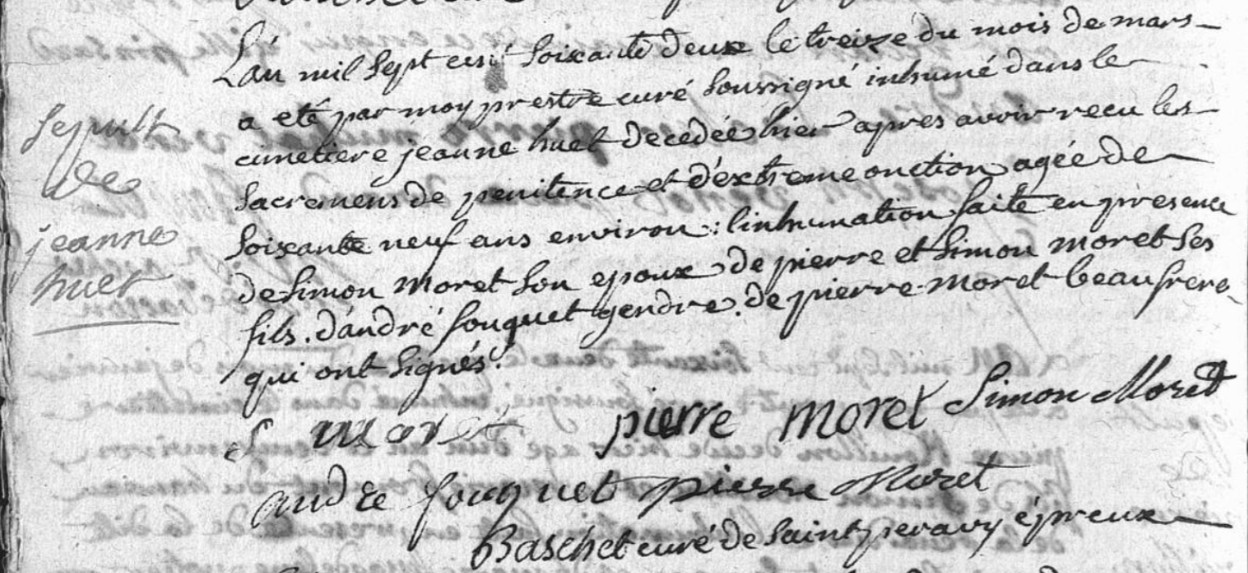 L'an mil sept cent soixante deux le treize du mois de mars
a eté par moy prestre curé soussigné inhumé dans le
cimetiere jeanne huet decedée hier apres avoir recu les
sacremens de penitence et d'extreme onction agée de
soixante neuf ans environ : l'inhumation faite en presence
de Simon moret son epoux de pierre et Simon moret ses
fils. d'andré fouquet gendre. de pierre moret beaufrere
qui ont signés.
sepult
de
jeanne
huet
S moret pierre moret Simon Moret
andre fouquet pierre Moret
Baschet curé de saint peravy épreux